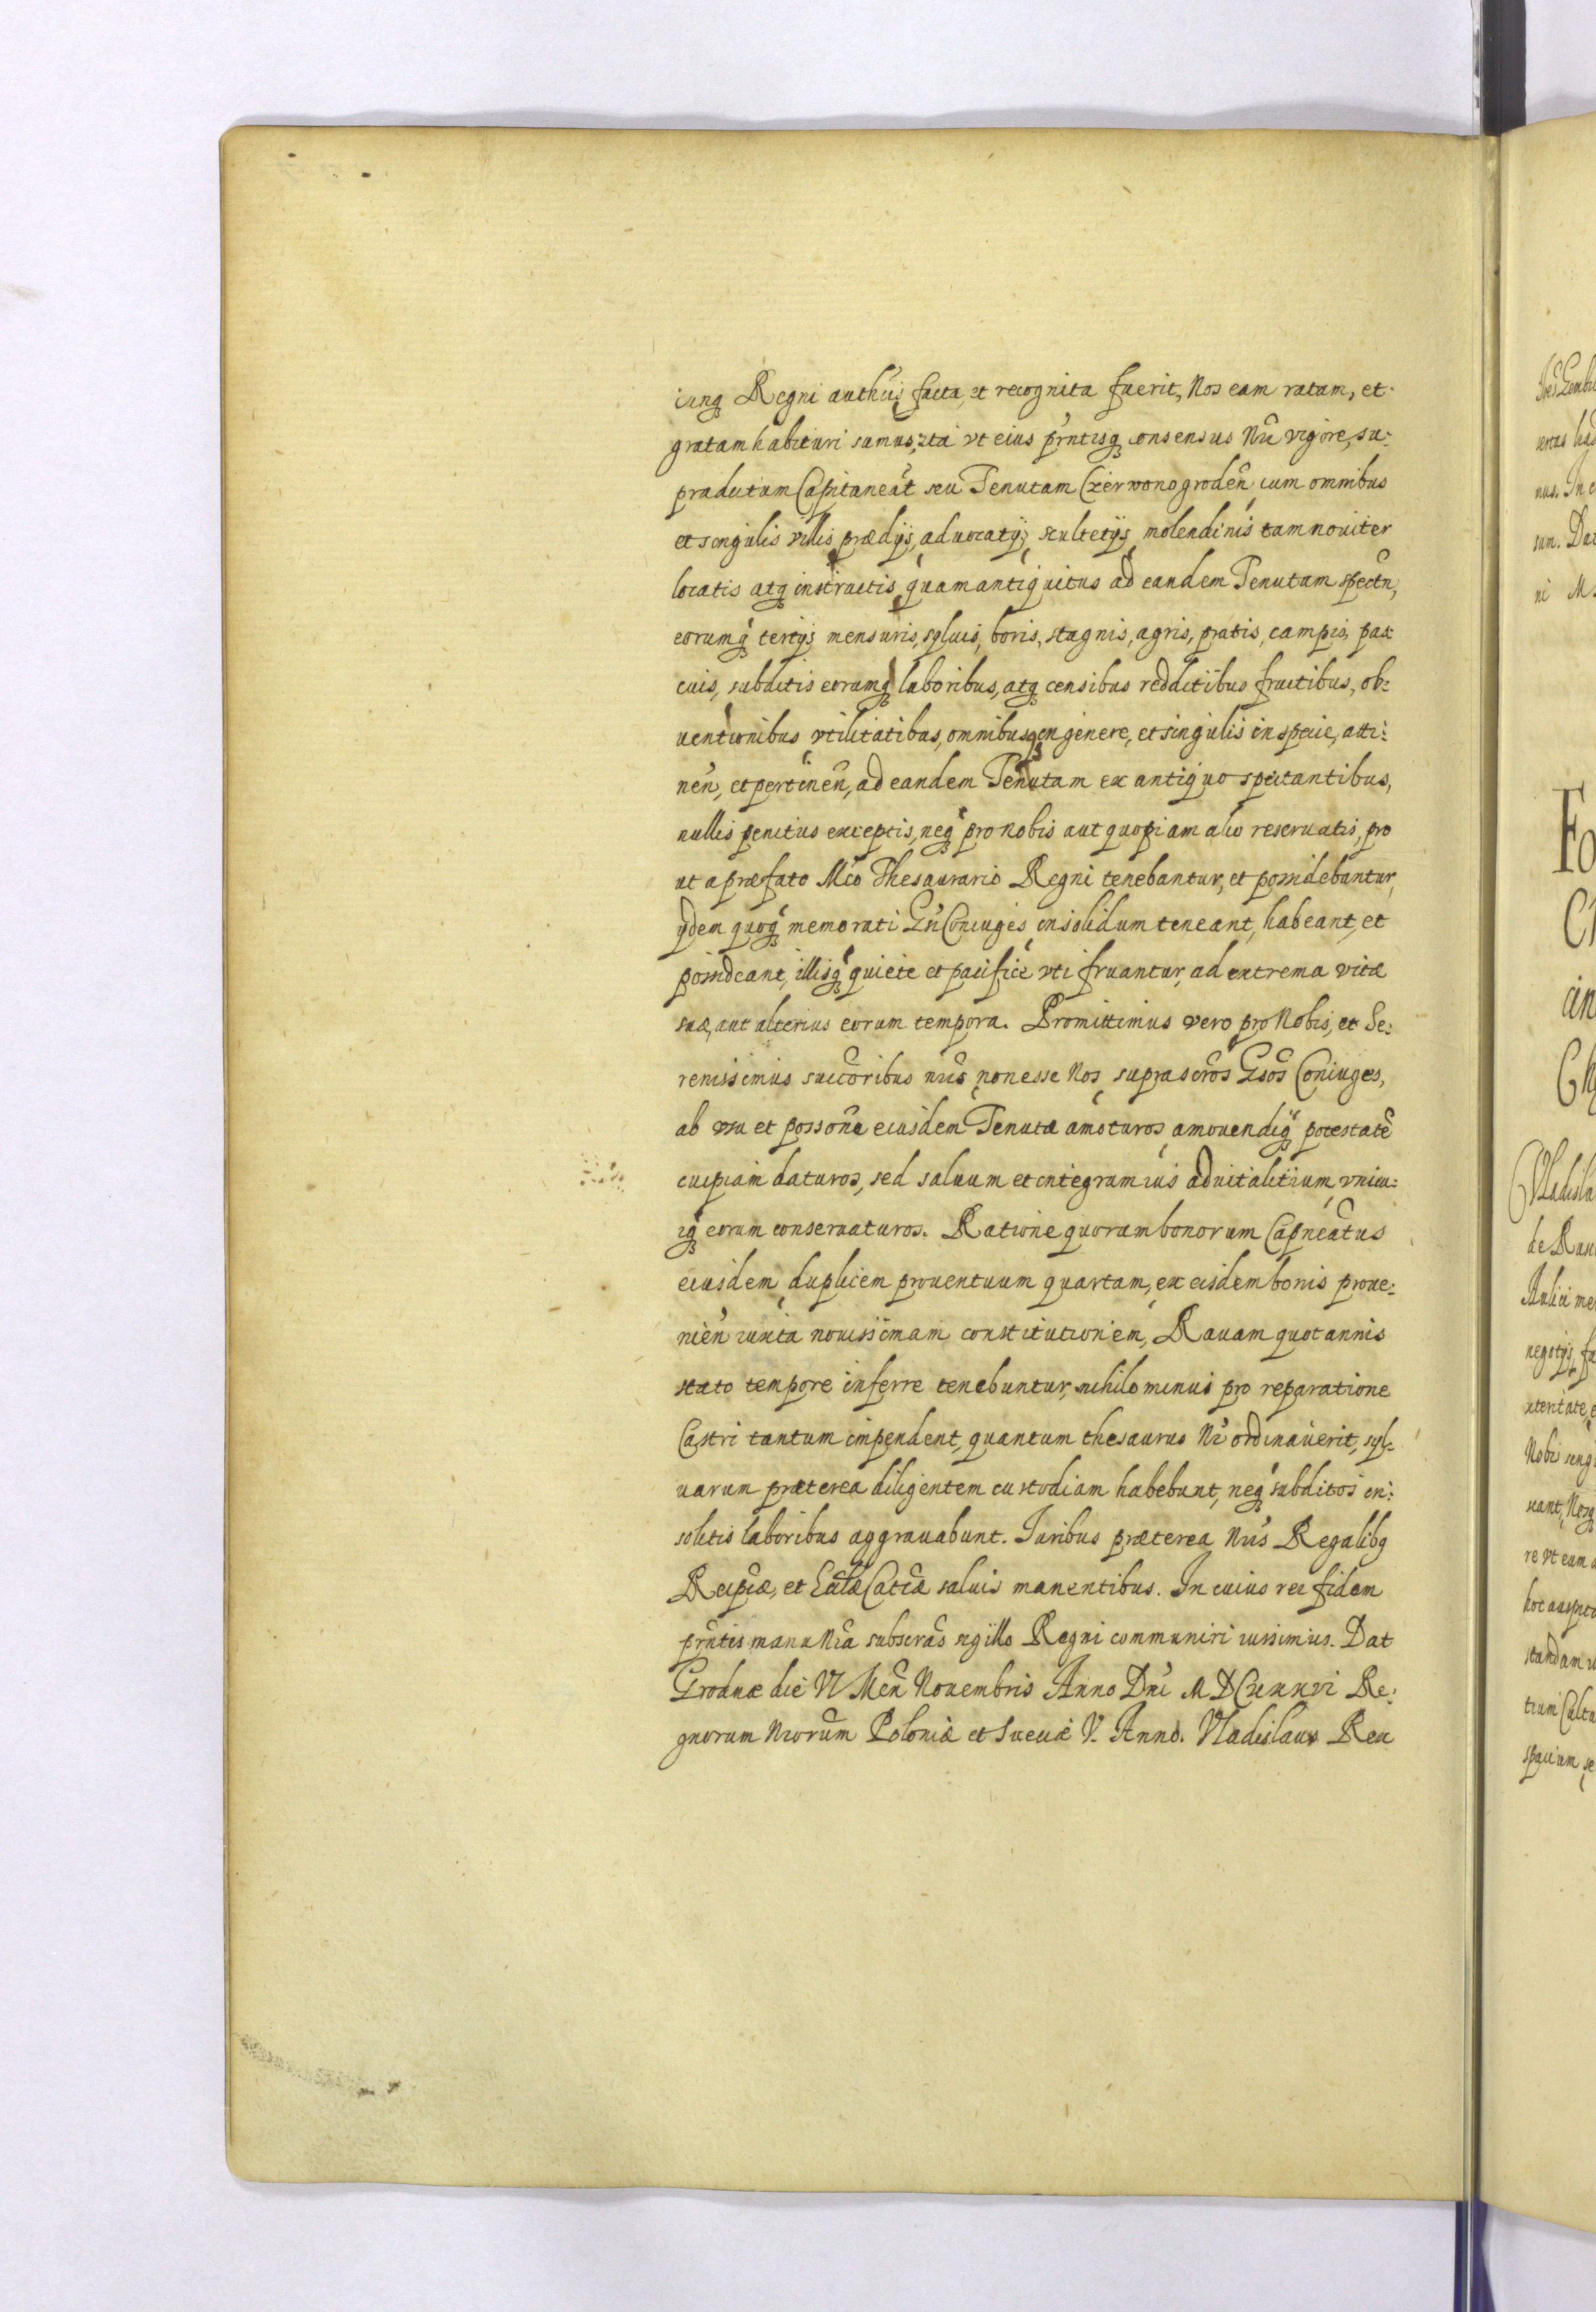 cunq Regni authcis facta, et recognita fuerit, Nos eam ratam, et
gratam habituri sumus, ita vt eius pntisq consensus Nri vigore, su:
pradictam Capitaneat seu Tenutam Czerwonogroden cum omnibus
et singulis villis prædijs, aduocatijs, scultetijs, molendinis tam nouiter
locatis atq instructis quam antiquitus ad eandem Tenutam spectn,
eorumq tertijs mensuris, syluis, boris, stagnis, agris, pratis, campis, pas
cuis, subditis eorumq laboribus, atq censibus redditibus fructibus, ob:
uentionibus vtilitatibus, omnibusq in genere, et singulis in specie, atti:
nen, et pertinen, ad eandem Tenutam ex antiquo spectantibus,
nullis penitus exceptis, neq pro nobis aut quopiam alio reseruatis, pro
ut a præfato Mco Thesaurario Regni tenebantur, et possidebantur,
ijdem quoq memorati Gn Coniuges in solidum teneant, habeant, et
possideant, illisq quiete et pacifice vti fruantur, ad extrema vitæ
suæ, aut alterius eorum tempora. Promittimus vero pro Nobis, et Se:
renissimis succoribus nris non esse Nos suprascros Gsos Coniuges,
ab vsu et possone eiusdem Tenutæ amoturos amouendiq potestate
cuipiam daturos, sed saluum et integram ius aduitalitium vnicu:
iq eorum conseruaturos. Ratione quorum bonorum Capneatus
eiusdem duplicem prouentuum quartam, ex eisdem bonis proue:
nien iuxta nouissimam constitutionem, Rauam quotannis
stato tempore inferre tenebuntur, nihilo minus pro reparatione
Castri tantum impendent, quantum thesaurus Nr ordinauerit, syl:
uarum præterea diligentem custodiam habebunt, neq subditos in:
solitis laboribus aggrauabunt. Iuribus præterea Nris Regalibq
Reipcæ, et Ecclæ Catcæ saluis manentibus. In cuius rei fidem
pntes manu Nra subscras sigillo Regni communiri iussimus. Dat
Grodnæ die VI Men Nouembris Anno Dni MDCxxxvi Re:
gnorum Nrorum Poloniæ et Sueciæ V. Anno. Vladislaus Rex